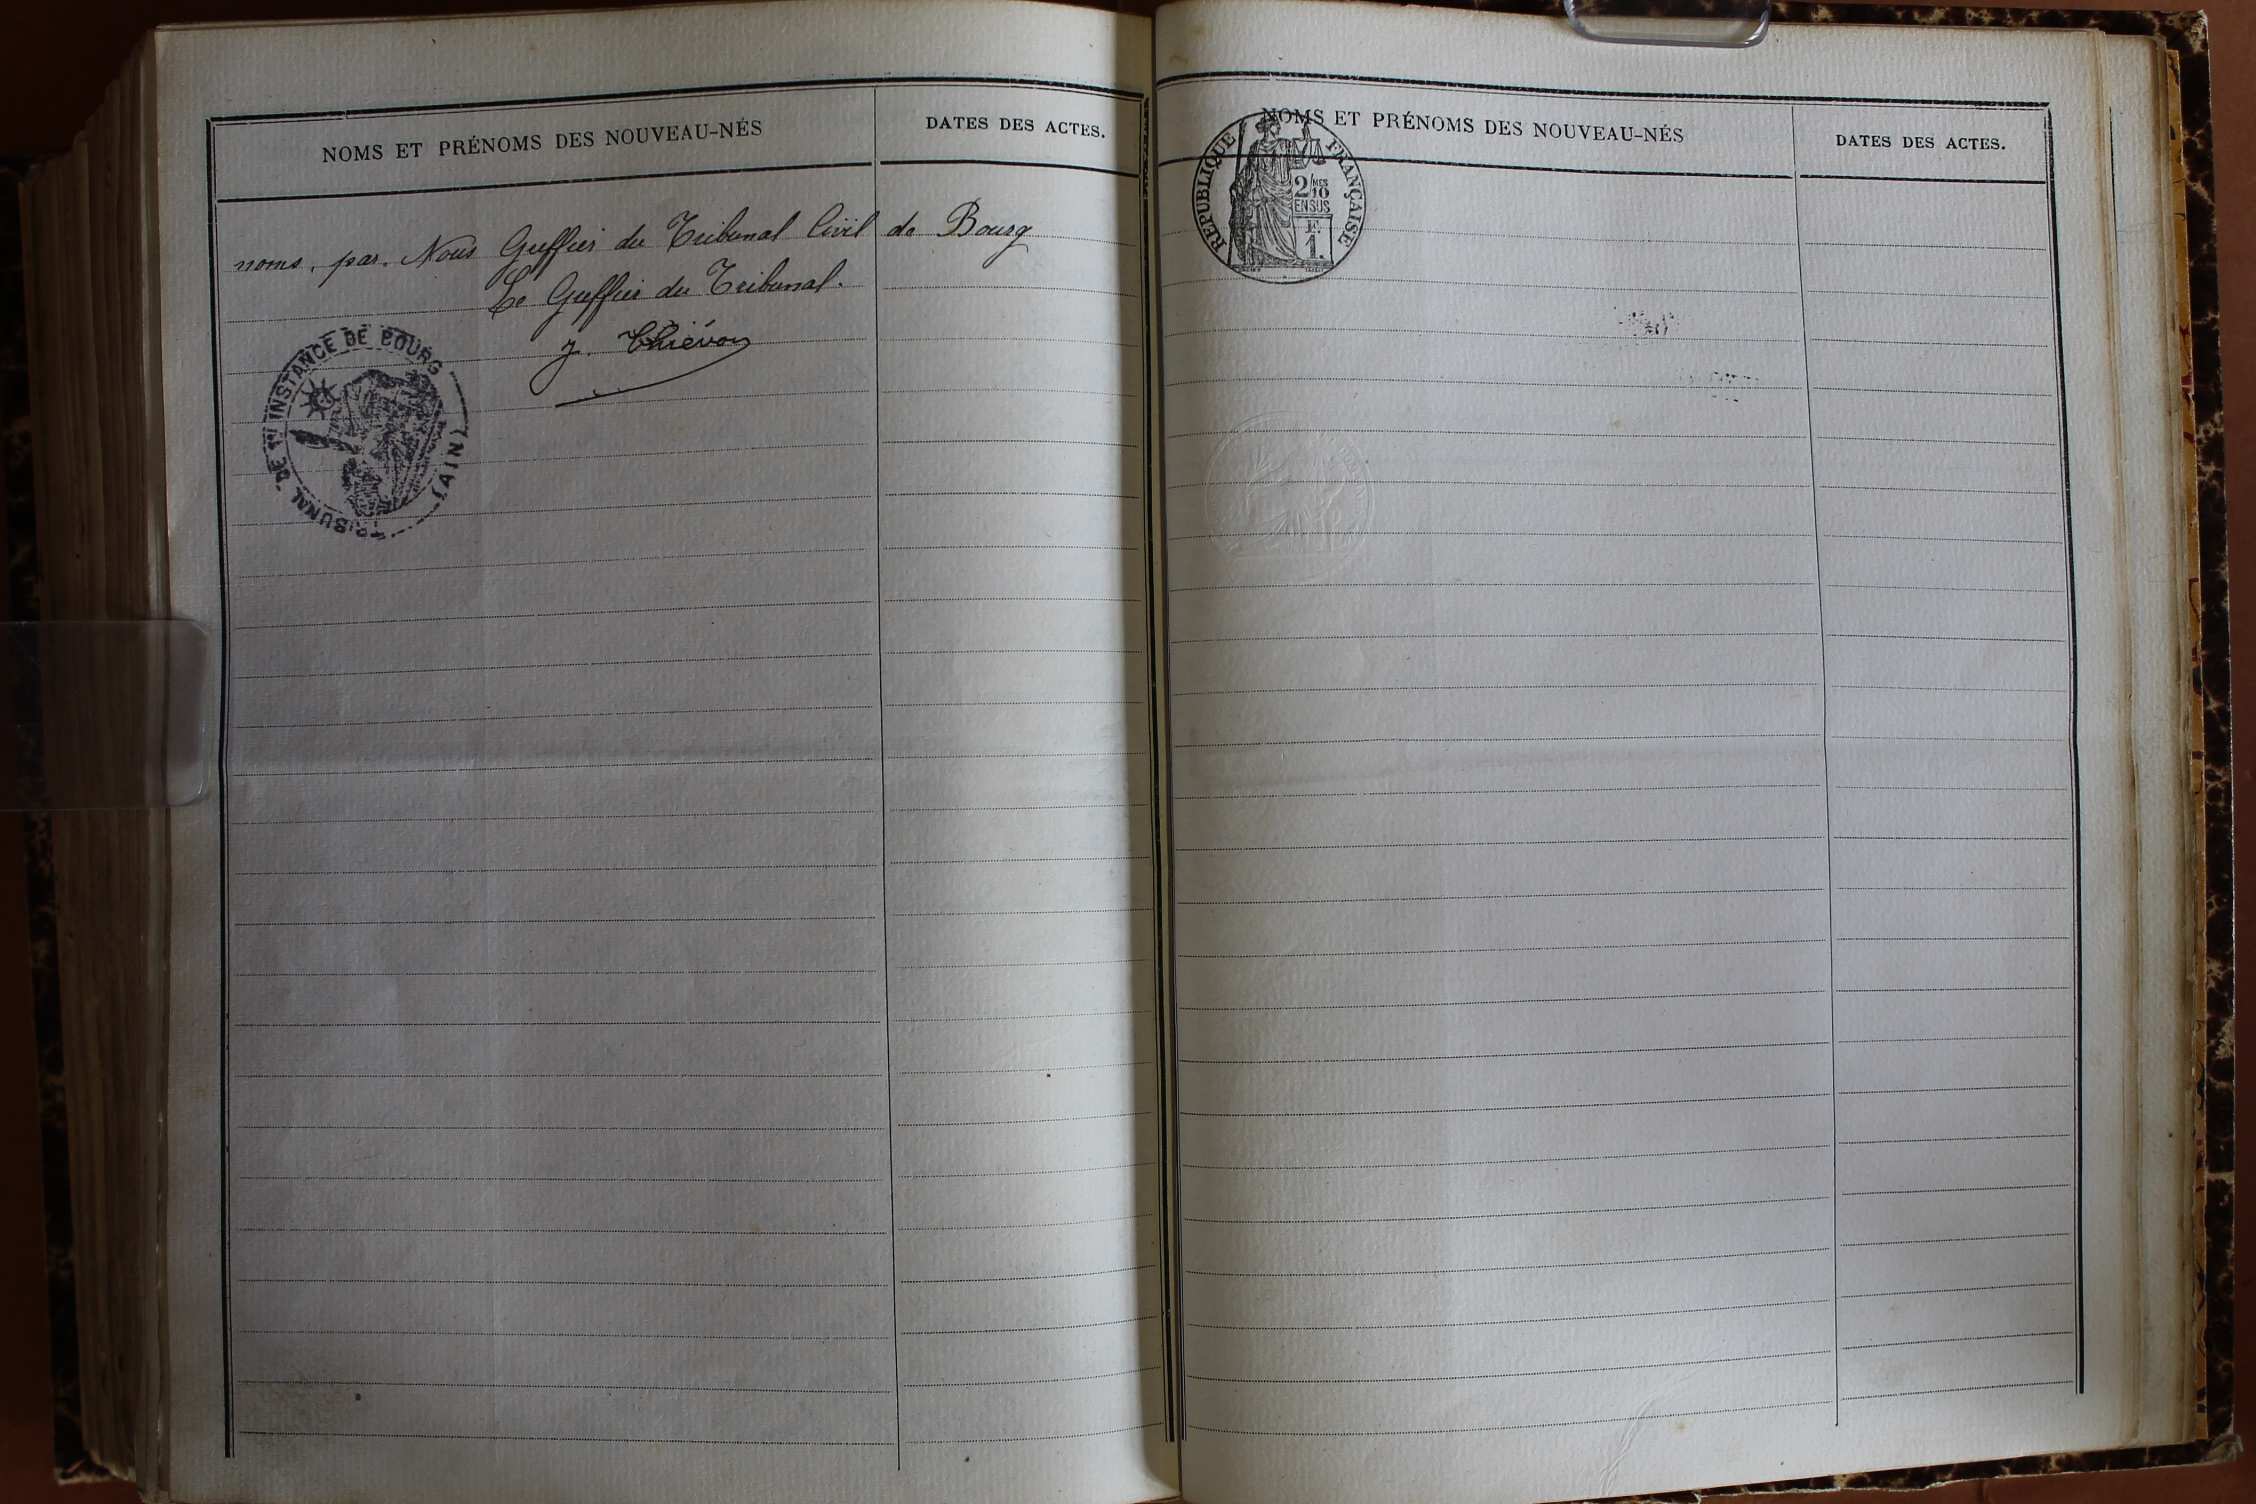 NOMS ET PRÉNOMS DES NOUVEAU-NÉS
DATES DES ACTES.
noms, par Nous Greffier du Tribunal Civil de Bourg
Le Greffier du Tribunal.
TRIBUNAL DE 1re INSTANCE DE BOURG
(AIN)
NOMS ET PRÉNOMS DES NOUVEAU-NÉS
DATES DES ACTES.
RÉPUBLIQUE FRANÇAISE
2/MES 10
EN SUS
F.
1.